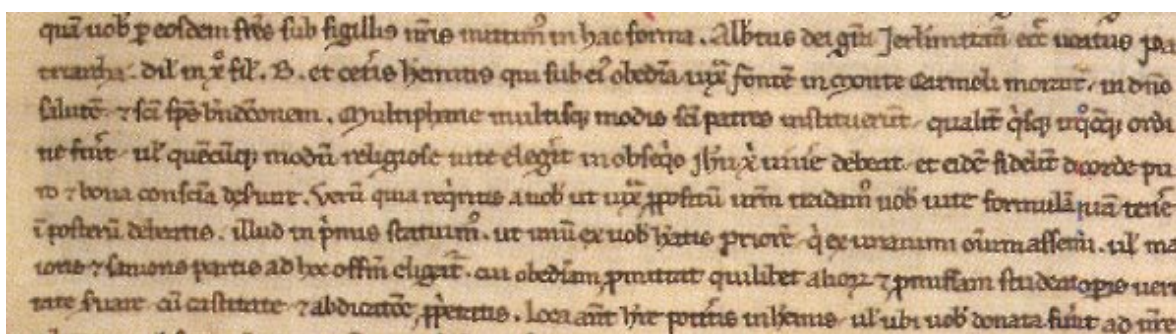 quā uob̄ p eosdem frēs sub sigillis nr̄is mittim⁹ in hac forma. Albt̄us dei gr̄a Jerl̄imitan̄ ecc̄ uocatus pa
triarcha. dil̄ in xp̄o fil̄. B. et ceťis h̄emitis qui sub ei⁹ obedīa iuxͣ fontē in monte Carmeli morant̄. in dn̄o
salutē ⁊ sc̄i sp̄s bn̄dicc̄onem. Multipharie multisq; modis sc̄i patres instituerūt. qualit̄ qⁱsq; ī qͦcūq; ordi
ne fūit. ul̓ quēcūq; modū religiose uite elegit̄ in obseqⁱo jh̄u xⁱ uiue̓ debeat. et eidē fidelit̄ d̓ corde pu
ro ⁊ bona consciā des̓uire. Verū quia reqⁱritis a nob̄ ut iuxͣ ꝓpositū ur̄m tradam⁹ uob̄ uite formulā quā tene̓
ī posterū debeatis. illud in pⁱmis statuim⁹. ut unū ex uob̄ h̄atis priorē. qⁱ ex unanimi oīum assensu. ul̓ ma
ioris ⁊ sanioris partis ad hoc offm̄ eligat̄. cui obedīam ꝓmittat quilibet alioꝝ ⁊ ꝓmissam studeat op̓is ueri
tate s̓uare cū castitate ⁊ abdicatōe ꝓp̓etatis. Loca aūt h̄re pot̓itis in h̓emis ul̓ ubi uob̄ donata fūint ad ur̄e